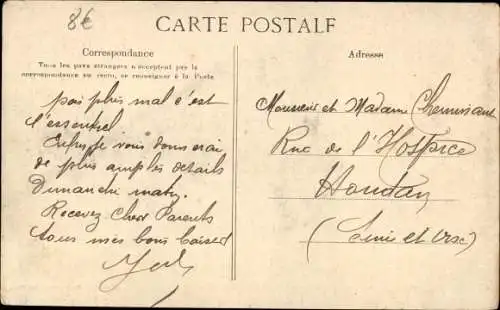 8€
CARTE POSTALE
Correspondance
Tous les pays étrangers n'acceptent pas la
correspondance au recto, se renseigner à la Poste
Adresse
pas plus mal c'est
l'essentiel
Enfin je vous donnerai
de plus amples details
Dimanche matin
Recevez Cher Parents
tous mes bons baisers
Monsieur et Madame
Rue de l'Hospice
Houdan
(Seine et Oise)